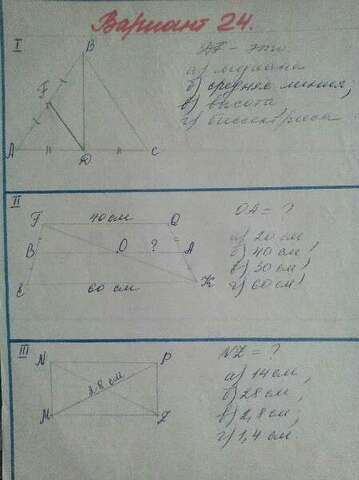 Вариант 24.
I
B
F
A
D
C
DF – это
а) медиана
б) средняя линия,
в) высота,
г) биссектриса
II
F
40 см
Q
B
O
?
A
E
60 см
K
OA = ?
а) 20 см
б) 40 см
в) 30 см
г) 60 см
III
N
P
2,8 см
M
Z
NZ = ?
а) 14 см
б) 28 см
в) 2,8 см;
г) 1,4 см.